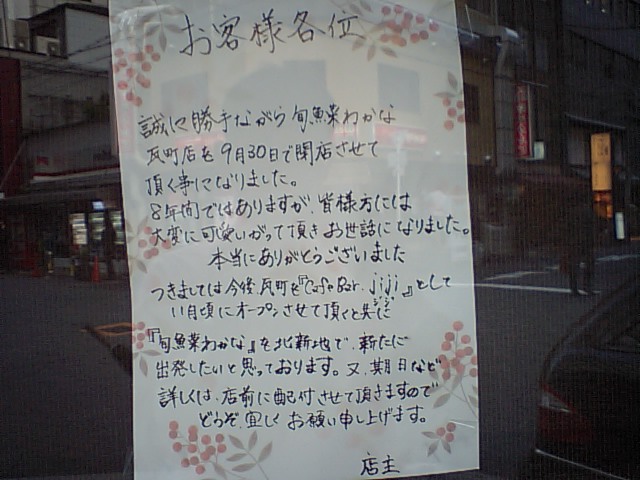 お客様各位
誠に勝手ながら旬魚菜わかな
瓦町店を9月30日で閉店させて
頂く事になりました。
8年間ではありますが、皆様方には
大変に可愛いがって頂きお世話になりました。
本当にありがとうございました
つきましては今後、瓦町を『Cafe Bar. jiji』として
ジジ
11月頃にオープンさせて頂くと共に
『旬魚菜わかな』を北新地で、新たに
出発したいと思っております。又、期日など
詳しくは、店前に配付させて頂きますので
どうぞ、宜しくお願い申し上げます。
店主